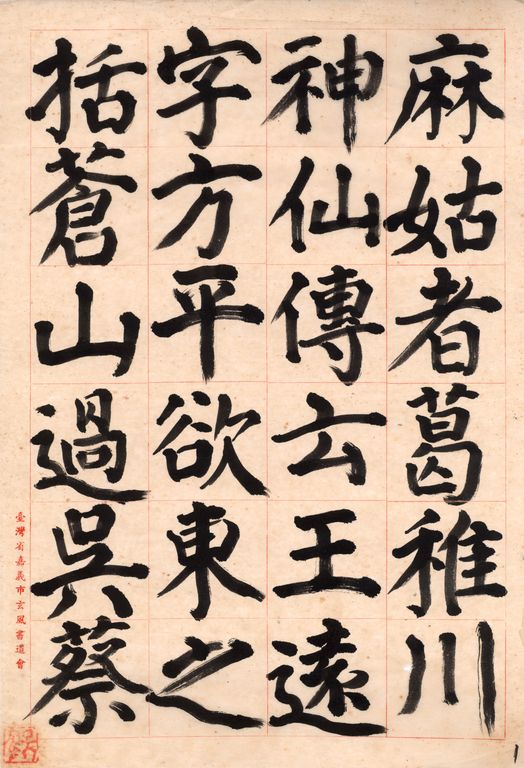 麻姑者葛稚川
神仙傳云王遠
字方平欲東之
括蒼山過吳蔡
臺灣省嘉義市玄風書道會
1